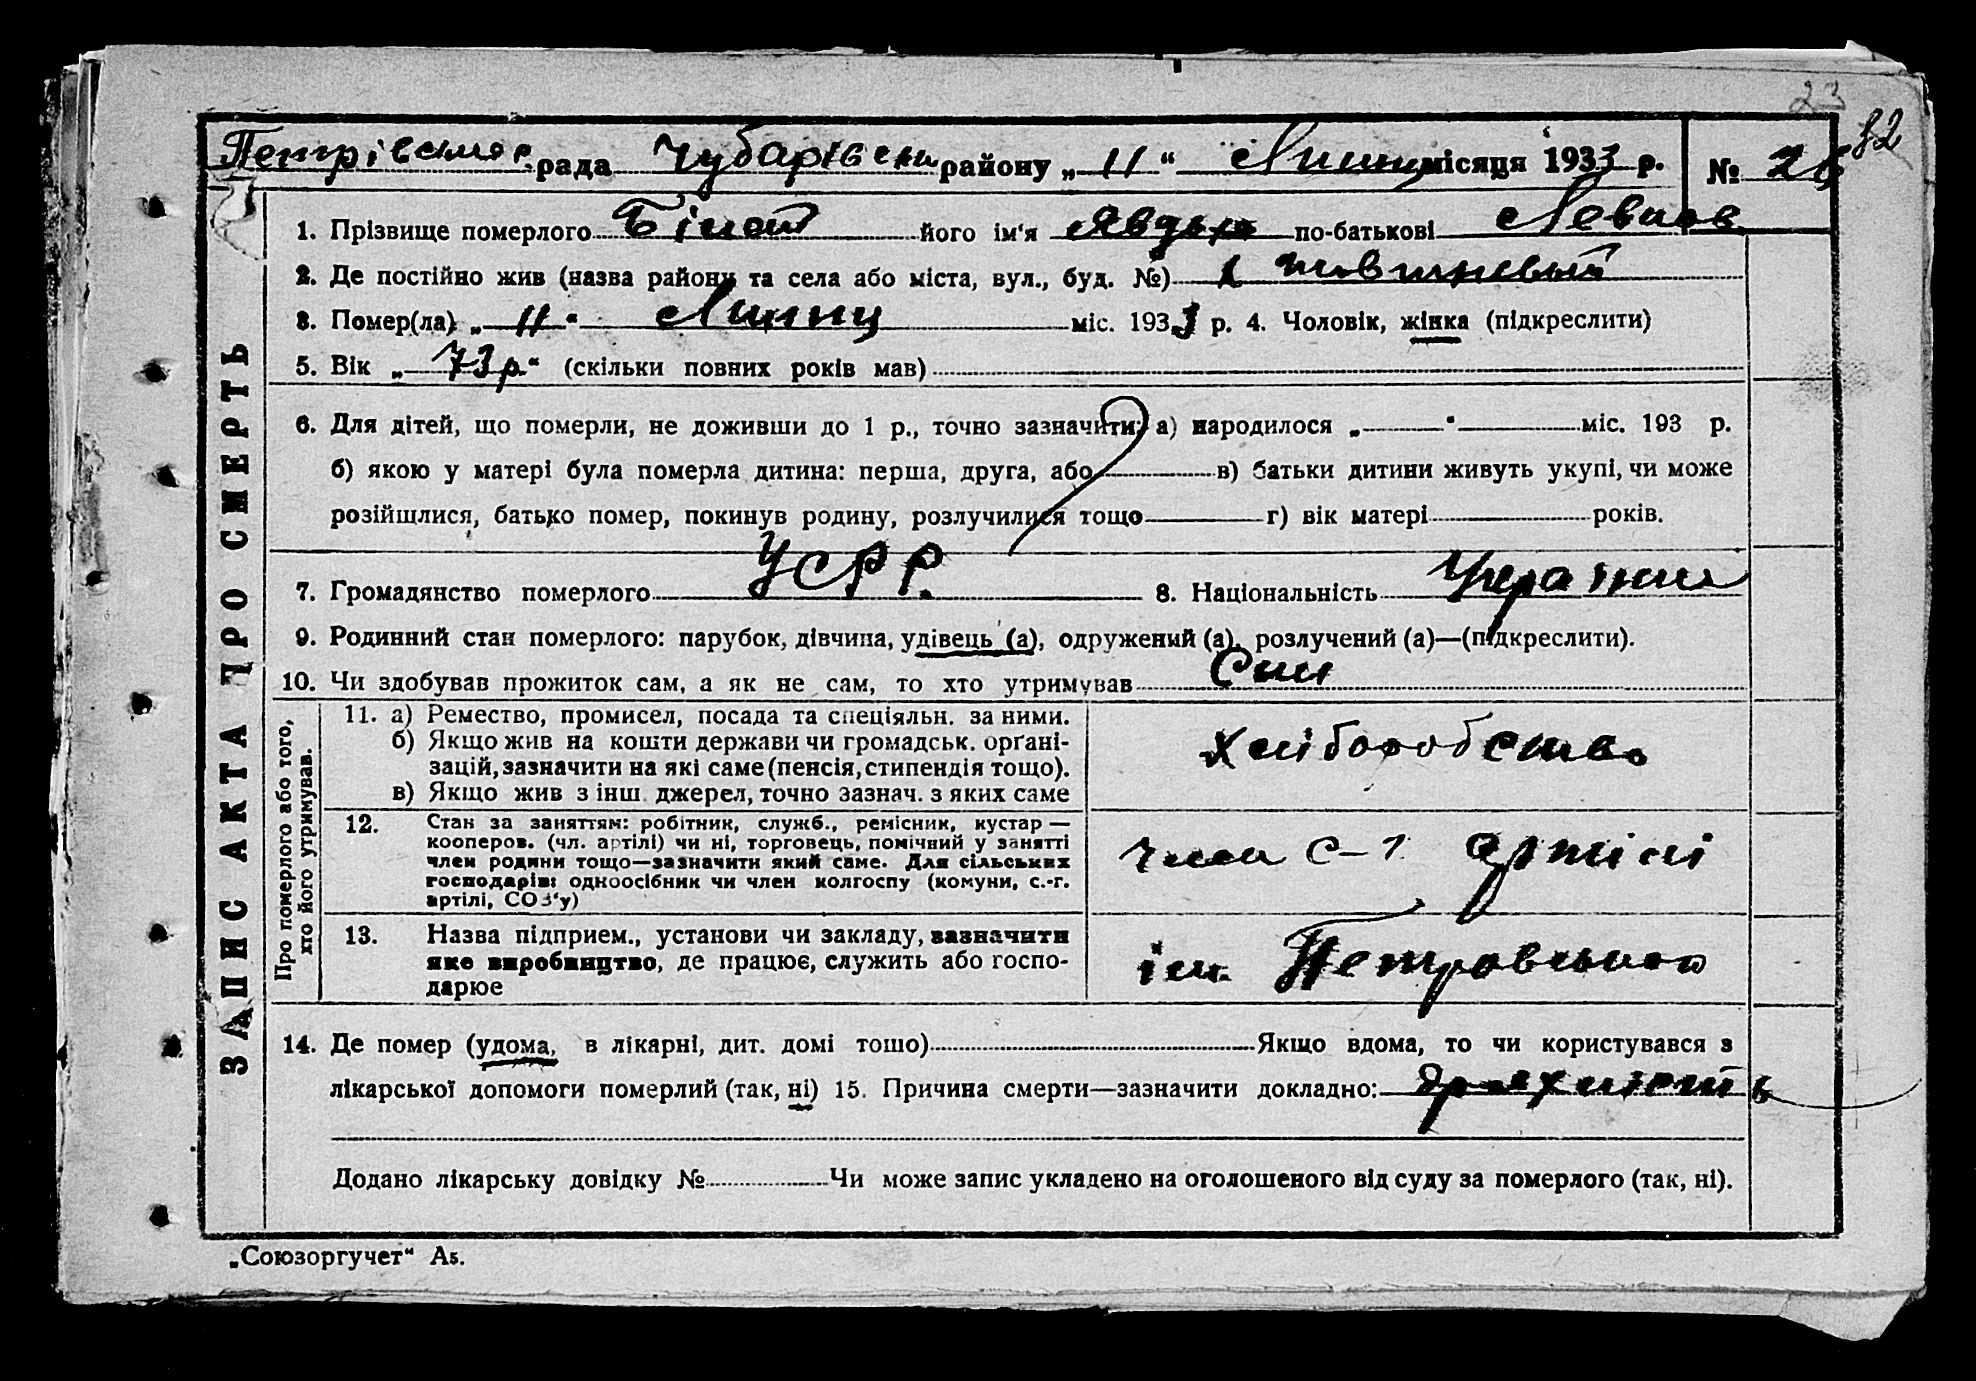 23
82
Петрівська рада Чубарівськ району „11“ Липц місяця 1933 р. №
1. Прізвище померлого Білой його ім'я Явдоха по-батькові
2. Де постійно жив (назва району та села або міста, вул., буд. №) х
3. Помер(ла) „11“ Липц міс. 1933 р. 4. Чоловік, жінка (підкреслити)
5. Вік „73 р.“ (скільки повних років мав)
6. Для дітей, що померли, не доживши до 1 р., точно зазначити: а) народилося „ “ міс. 193 р.
б) якою у матері була померла дитина: перша, друга, або в) батьки дитини живуть укупі, чи може
розійшлися, батько помер, покинув родину, розлучилися тощо г) вік матері років.
7. Громадянство померлого УСРР. 8. Національність Украинка
9. Родинний стан померлого: парубок, дівчина, удівець (а), одружений (а), розлучений (а)—(підкреслити).
10. Чи здобував прожиток сам, а як не сам, то хто утримував Син
ЗАПИС АКТА ПРО СМЕРТЬ
Про померлого або того,
хто його утримував.
11. а) Ремество, промисел, посада та спеціяльн. за ними.
б) Якщо жив на кошти держави чи громадськ. орґані-
зацій, зазначити на які саме (пенсія, стипендія тощо).
в) Якщо жив з інш. джерел, точно зазнач. з яких саме
хліборобство
12. Стан за заняттям: робітник, служб., ремісник, кустар —
кооперов. (чл. артілі) чи ні, торговець, помічний у занятті
член родини тощо—зазначити який саме. Для сільських
господарів: одноосібник чи член колгоспу (комуни, с.-г.
артілі, СОЗ'у)
член С-Г артілі
13. Назва підприєм., установи чи закладу, зазначити
яке виробництво, де працює, служить або госпо-
дарює
ім. Петровського
14. Де помер (удома, в лікарні, дит. домі тощо) Якщо вдома, то чи користувався з
лікарської допомоги померлий (так, ні) 15. Причина смерти—зазначити докладно: дряхлість
Додано лікарську довідку № Чи може запис укладено на оголошеного від суду за померлого (так, ні).
„Союзоргучет“ А5.